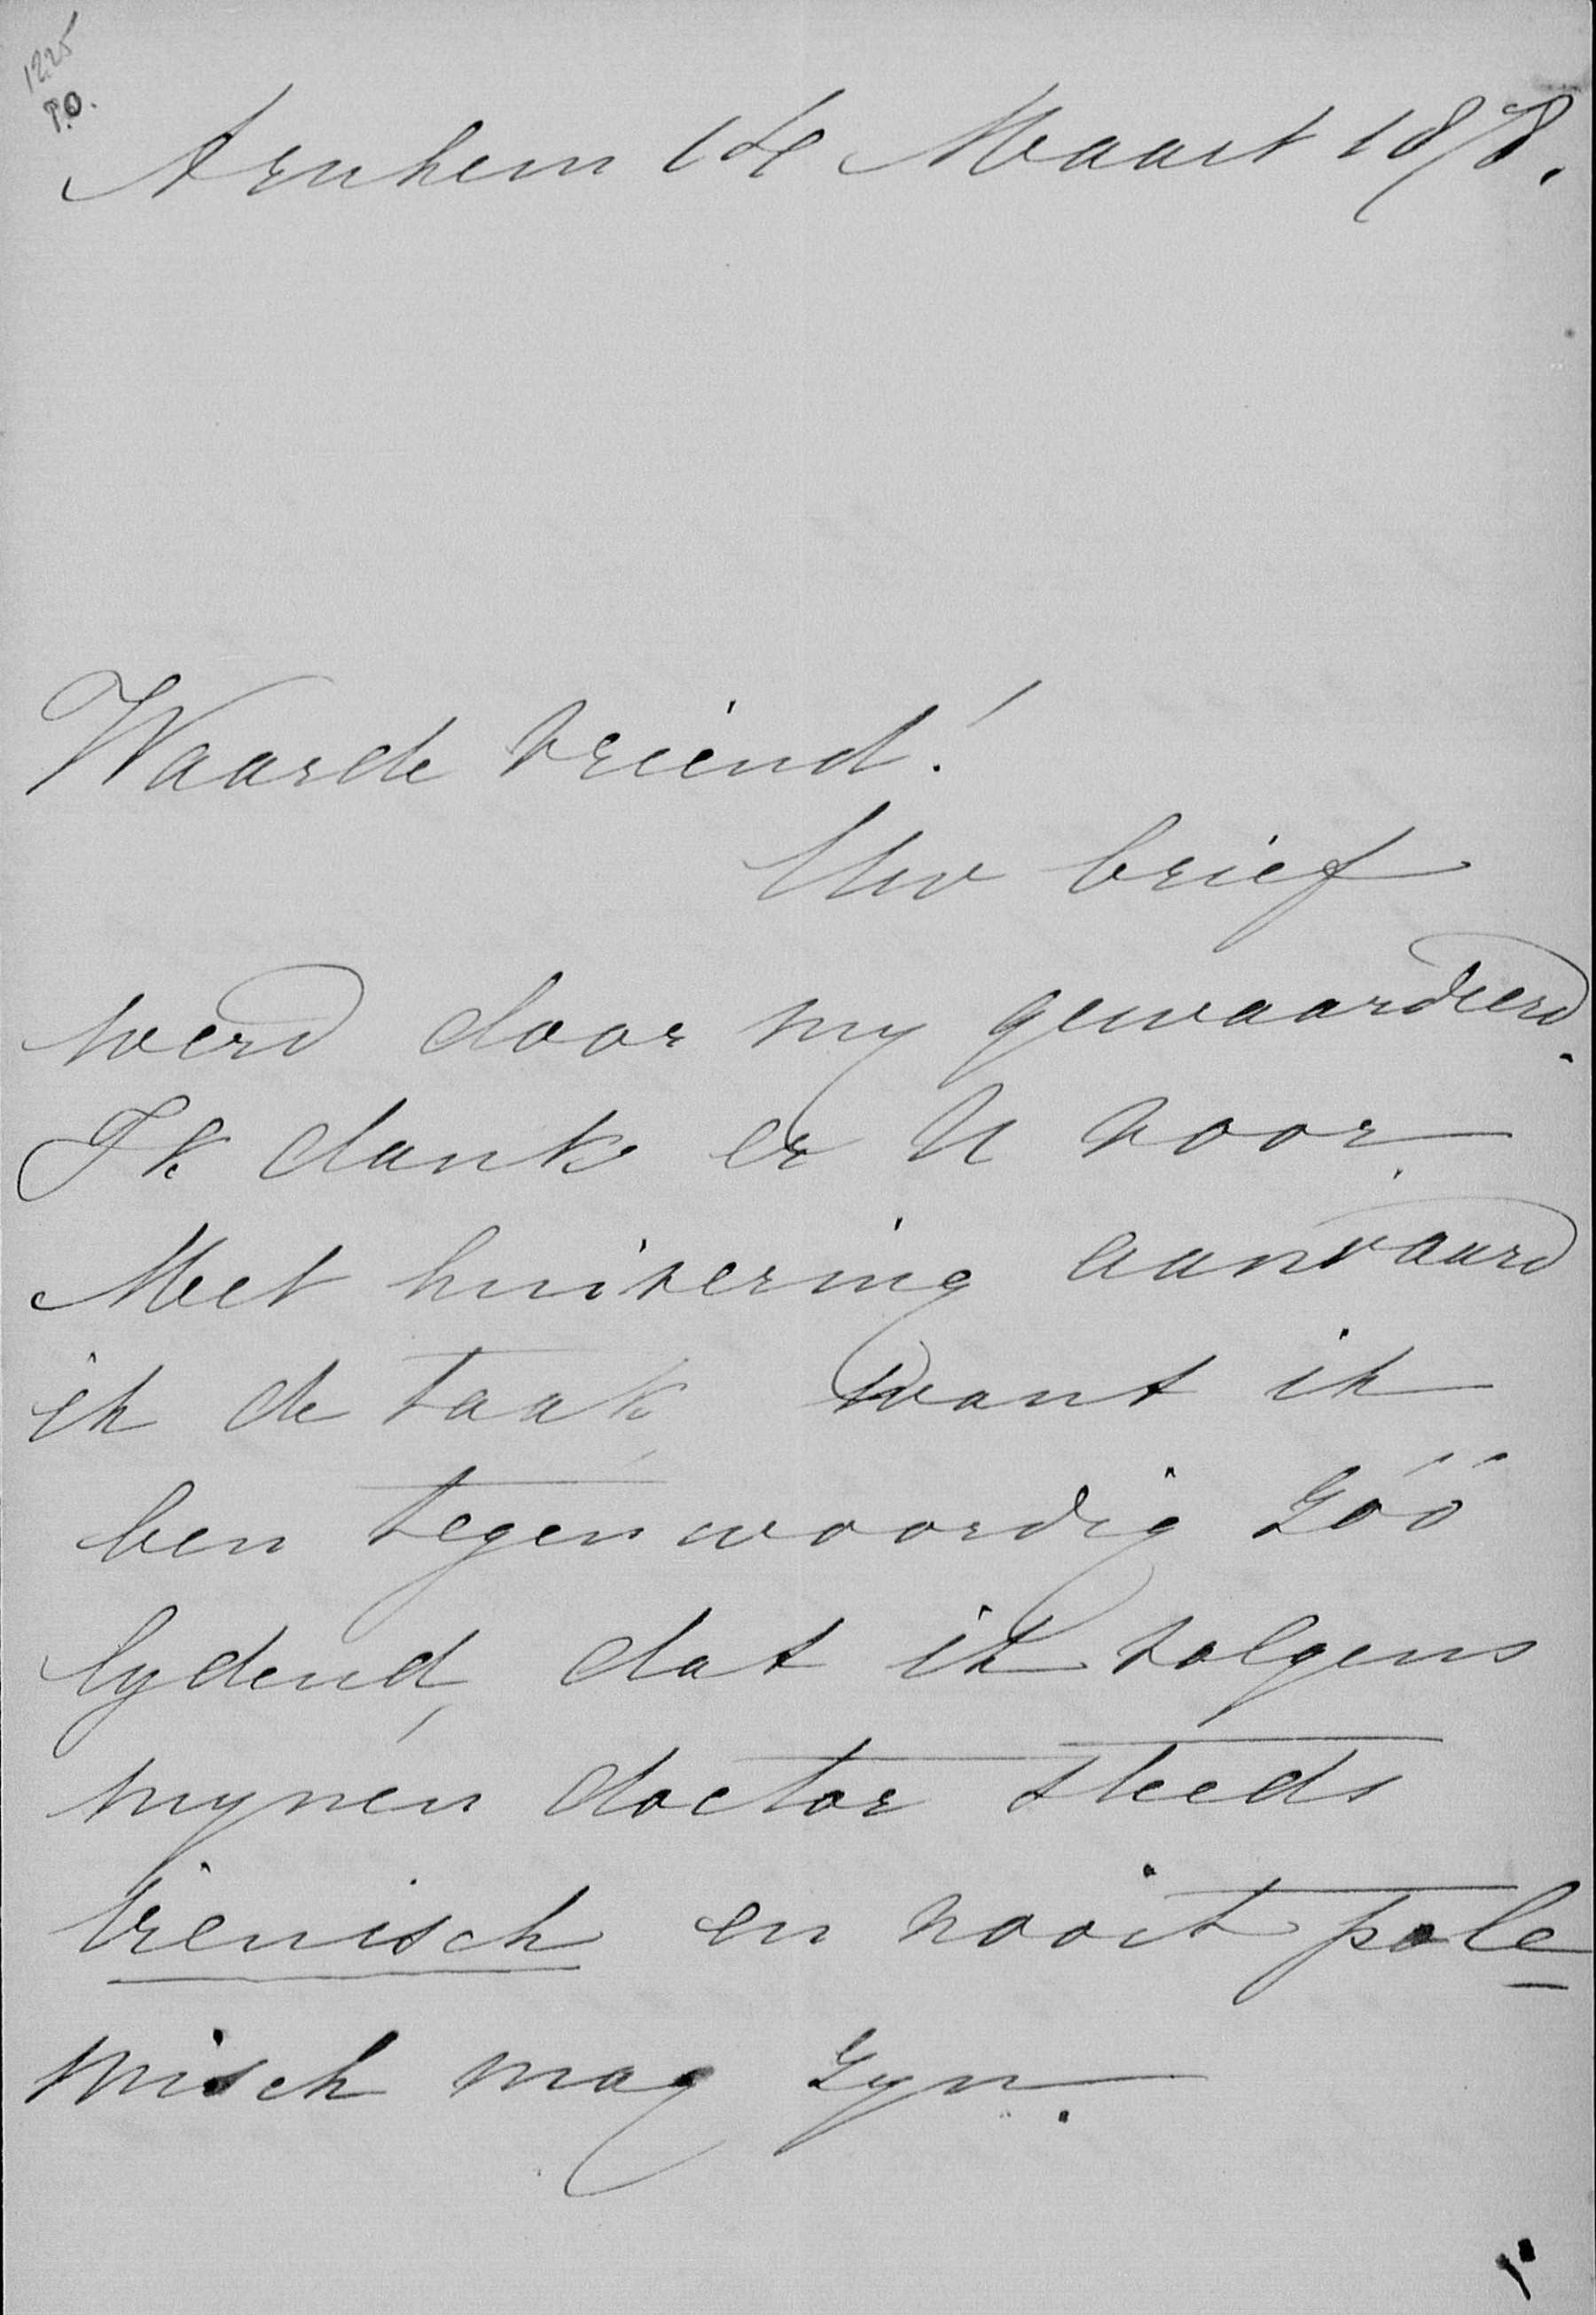 1225
P.O.
Arnhem 14 Maart 1878.
Waarde vriend!
Uw brief
werd door my gewaardeerd.
Ik dank er U voor.
Met huivering aanvaard
ik de taak, want ik
ben tegenwoordig zóó
lydend, dat ik volgens
mynen doctor steeds
irenisch en nooit pole
misch mag zyn.